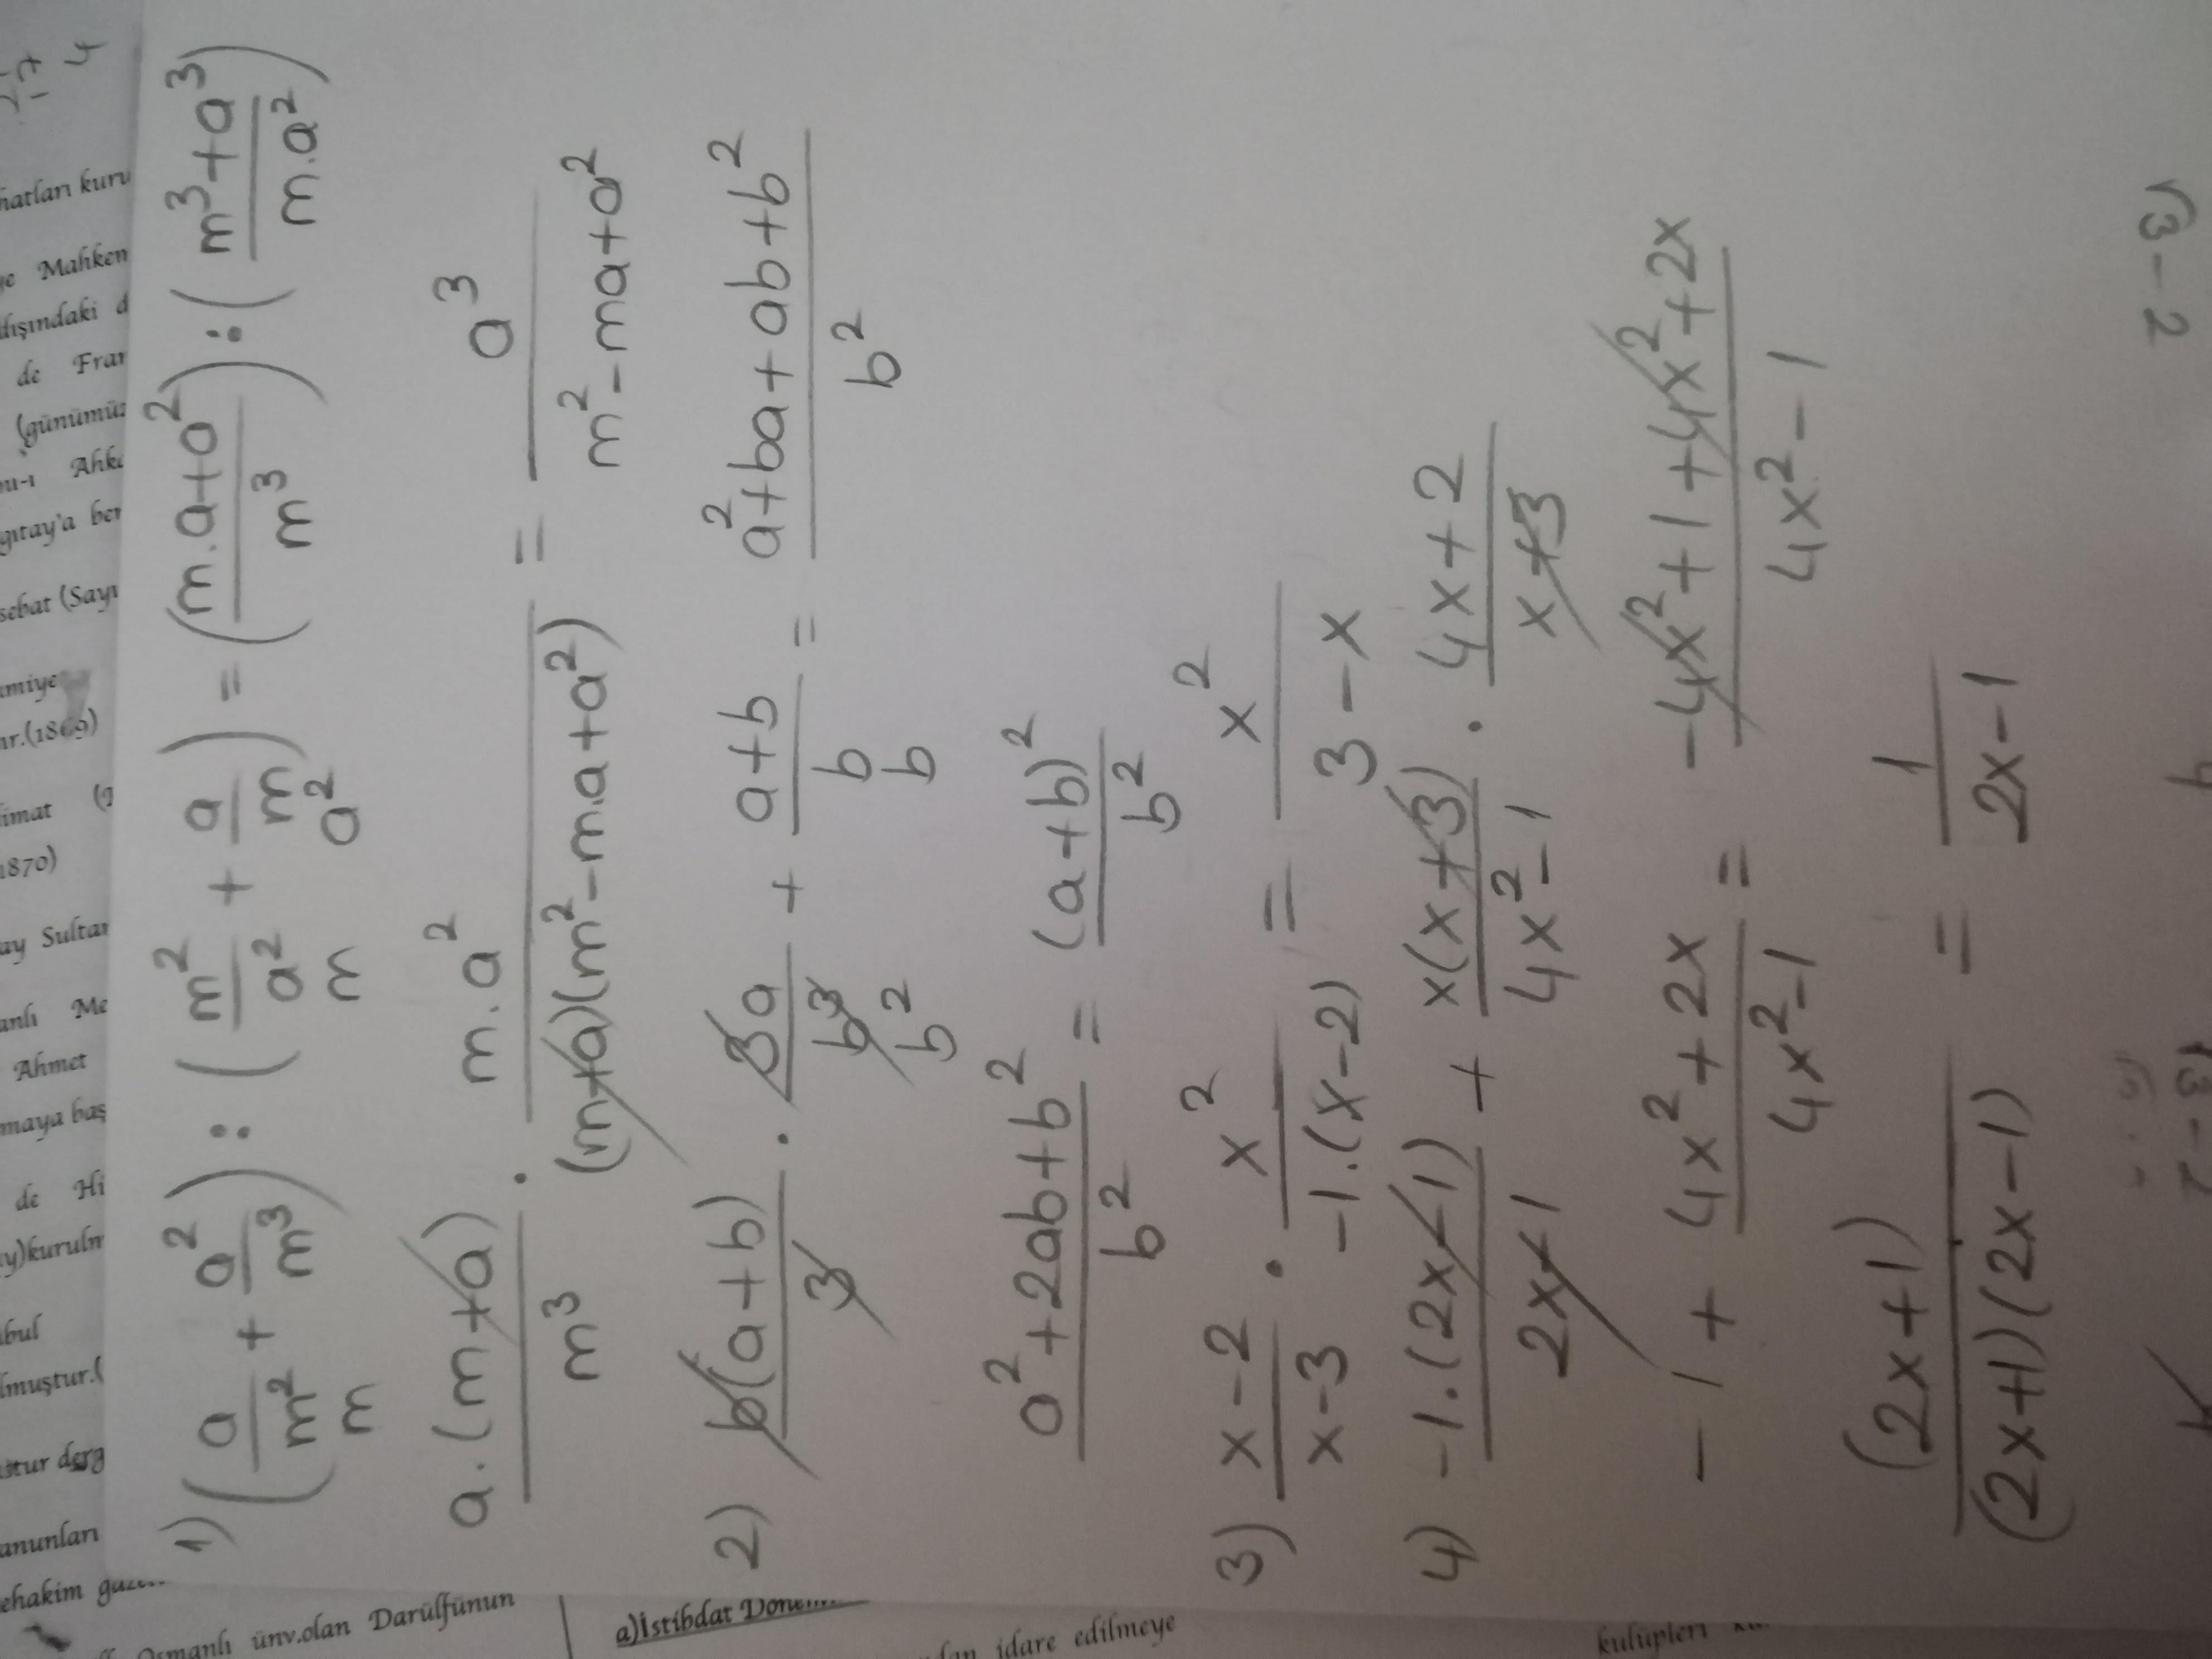 1) (a/m² + a²/m³) : (m²/a² + a/m) = (m.a+a²/m³) : (m³+a³/m.a²)
m m a²
a.(m+a)/m³ . m.a²/(m+a)(m²-m.a+a²) = a³/m²-ma+a²
2) b(a+b)/3 . 3a/b³ + a+b/b = a²+ba+ab+b²/b²
b² b
a²+2ab+b²/b² = (a+b)²/b²
3) x-2/x-3 . x²/-1.(x-2) = x²/3-x
4) -1.(2x-1)/2x-1 + x(x+3)/4x²-1 . 4x+2/x+3
-1 + 4x²+2x/4x²-1 = -4x²+1+4x²+2x/4x²-1
(2x+1)/(2x+1)(2x-1) = 1/2x-1
hatları kuru
ye Mahkem
dışındaki d
de Fran
(günümüz
Ahk
gıtay'a ben
sebat (Sayı
amiye
ır.(1869)
imat
1870)
ay Sultan
anlı Me
Ahmet
maya baş
de Hi
y)kurulm
bul
lmuştur.(
stur derg
anunları
ehakim
Osmanlı ünv.olan Darülfünun
a)İstibdat
idare edilmeye
kulüpleri